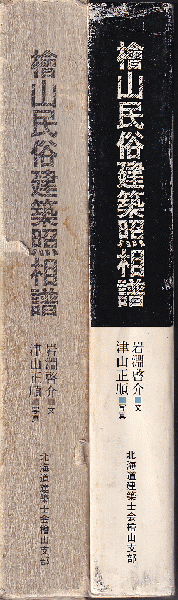 檜山民俗建築照相譜
岩淵啓介■文
津山正順■写真
北海道建築士会檜山支部
檜山民俗建築照相譜
岩淵啓介■文
津山正順■写真
北海道建築士会檜山支部